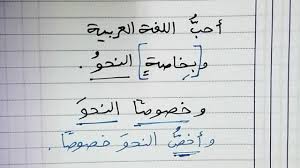 أحبُّ اللغة العربية
و[بِخاصةٍ] النحوُ .
و خصوصًا النحوَ
و أخصُّ النحوَ خصوصًا .